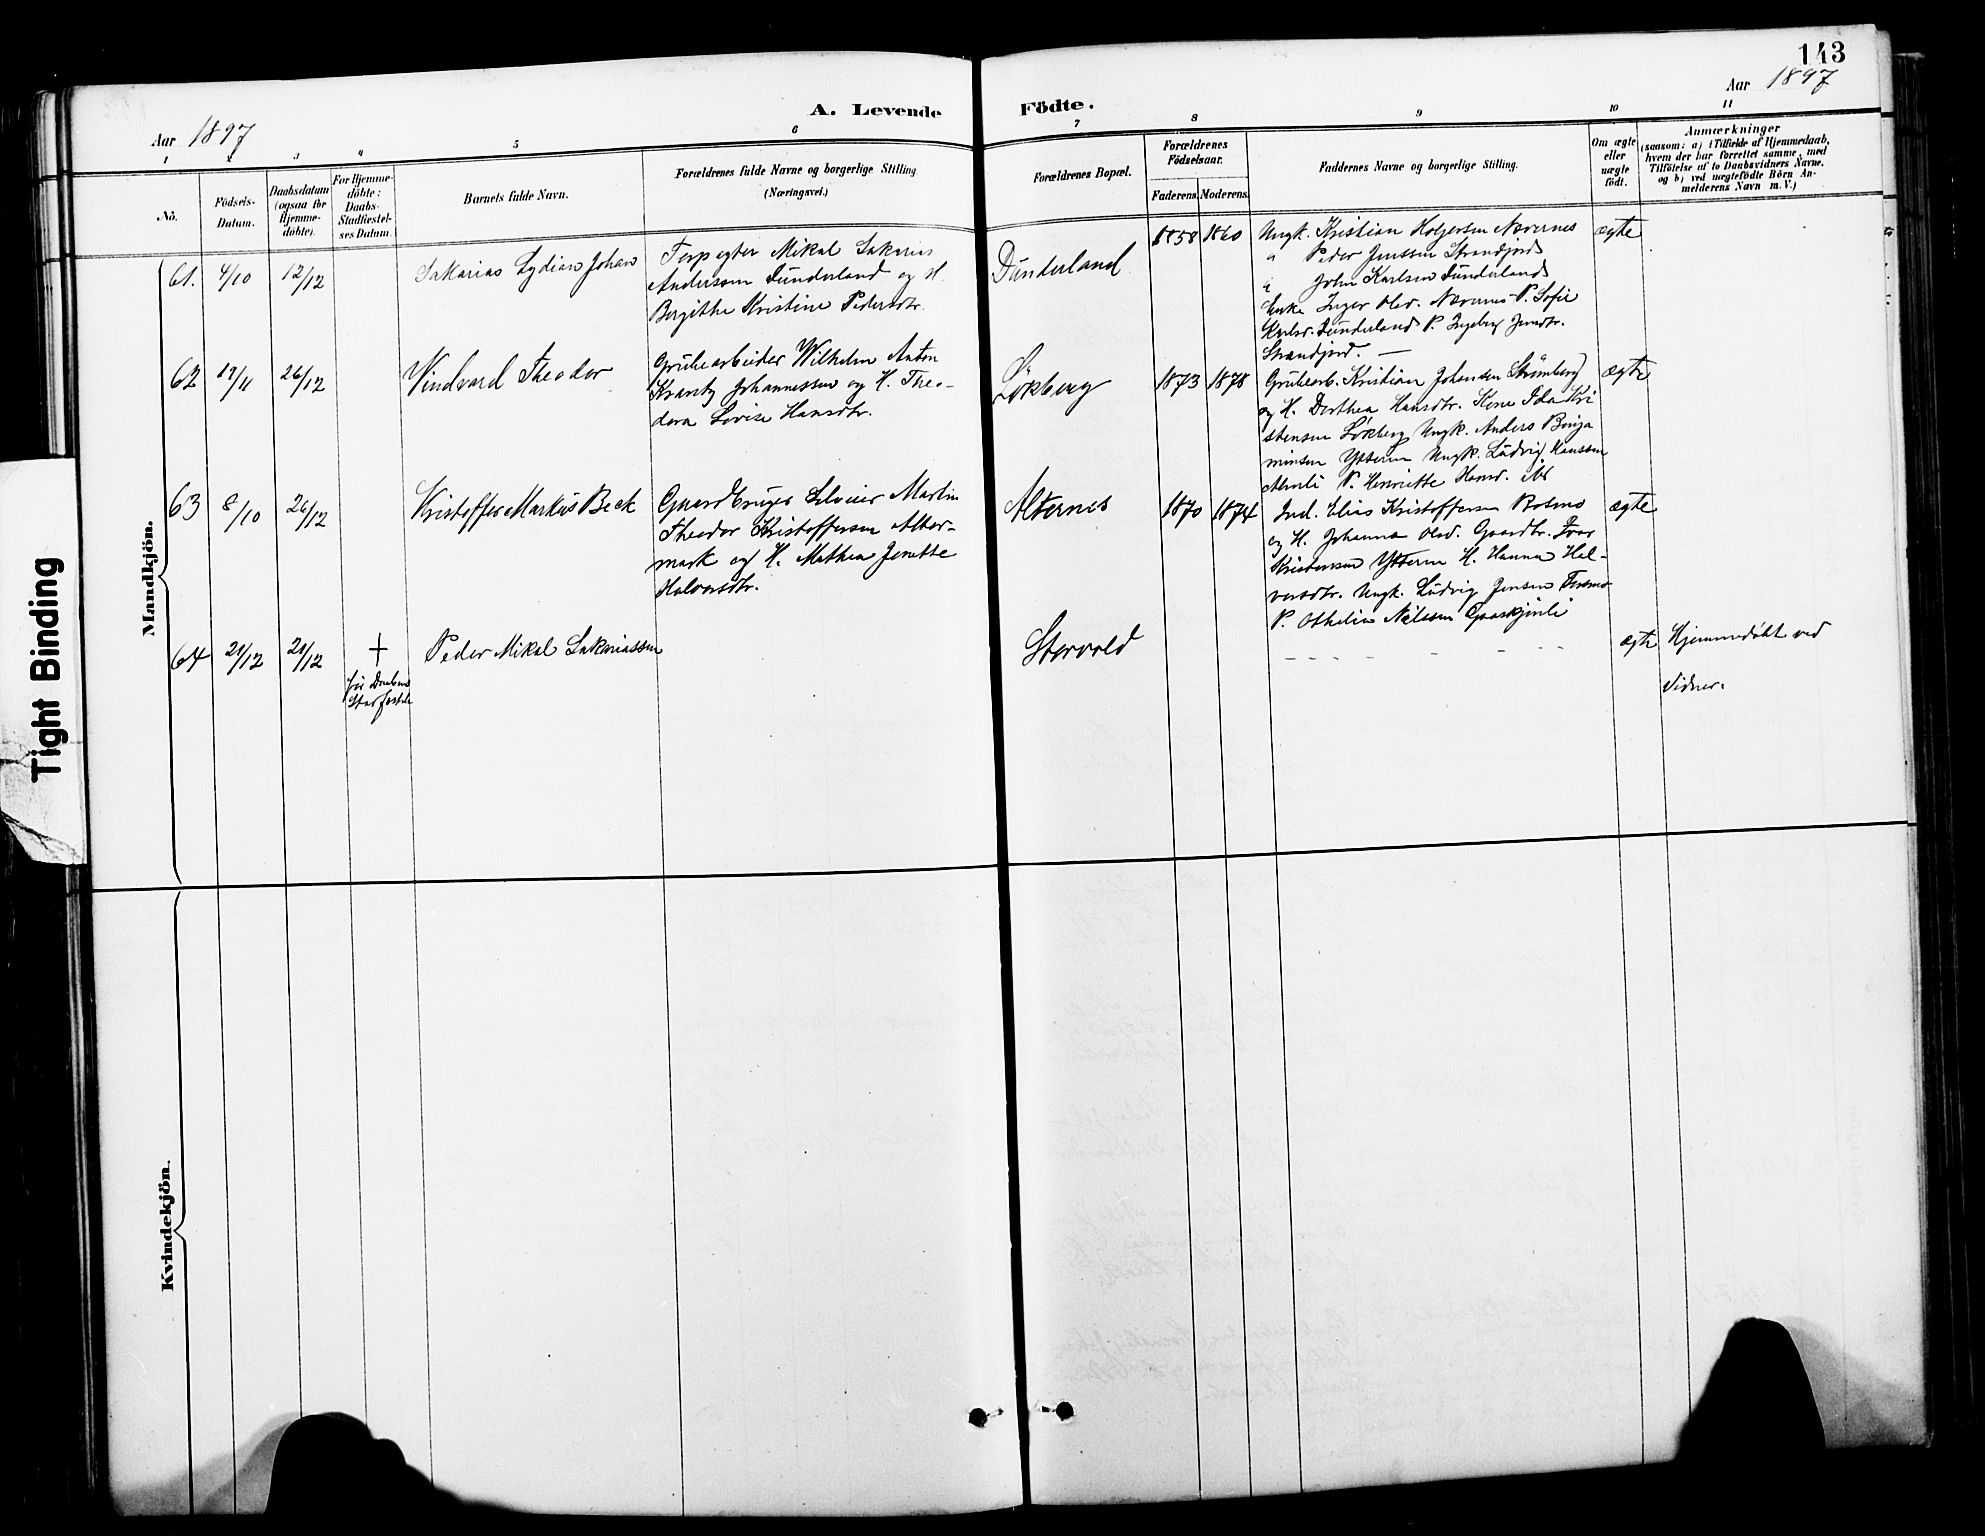 143
Aar 1897
Aar 1897
A. Levende Födte.
1 2 3 4 5 6 7 8 9 10 11
No.
Födsels-
Datum.
Daabsdatum
(ogsaa for
Hjemme-
döbte).
For Hjemme-
döbte:
Daabs-
Stadfæstel-
ses Datum.
Barnets fulde Navn.
Forældrenes fulde Navne og borgerlige Stilling
(Næringsvei.)
Forældrenes Bopæl.
Forældrenes
Födselsaar.
Faderens. Moderens.
Faddernes Navne og borgerlige Stilling.
Om ægte
eller
uægte
födt.
Anmærkninger
(saasom: a) i Tilfælde af Hjemmedaab,
hvem der har forrettet samme, med
Tilföielse af to Daabsvidners Navne,
og b) ved uægtefödte Börn An-
melderens Navn m. V.)
Mandkjön.
61. 4/10 12/12
Sakarias Lydian Johan
Forpagter Mikal Sakarias
Anderssen Dunderland og H.
Bergithe Kristine Pedersdtr.
Dunderland
1858 1860
Ungk. Kristian Holgersen Nævernes
" Peder Jenssen Strandjord
" John Karlsen Dunderland
Enke Inger Olsd. Nævernes P. Sofie
Karlsd. Dunderland P. Ingeborg Jensdtr.
Strandjord. —
ægte
62 19/11 26/12
Vindvard Theodor
Grubearbeider Wilhelm Anton
Krantz Johannessen og H. Theo-
dora Lovise Hansdtr.
Løkberg
1873 1878
Grubearb. Kristian Johansen Strömberg
og H. Dorthea Hansdtr. Kone Ida Kri
stensen Løkberg Ungk. Anders Benja
minsen Ytteren Ungk. Ludvig Hanssen
P. Henriette Hansd. ibd
ægte
63 8/10 26/12
Kristoffer Markus Beck
Gaardbruger Martin
Theodor Kristoffersen Alter-
mark og H. Mathea Jenette
Halvorsdtr.
Alternes
1870 1874
Ind. Elias Kristoffersen Bosmo
og H. Johanna Olsd. Gaardbr. Ivar
Kristensen Ytteren H. Hanna Hal-
vorsdtr. Ungk. Ludvig Jensen
P. Othelie Nilssen
ægte
64 21/12 21/12
+
før Daabens
Stadfestelse
Peder Mikal Sakariassen
Storvold
ægte
Hjemmedøbt ved
Vidner.
Kvindekjön.
Tight Binding